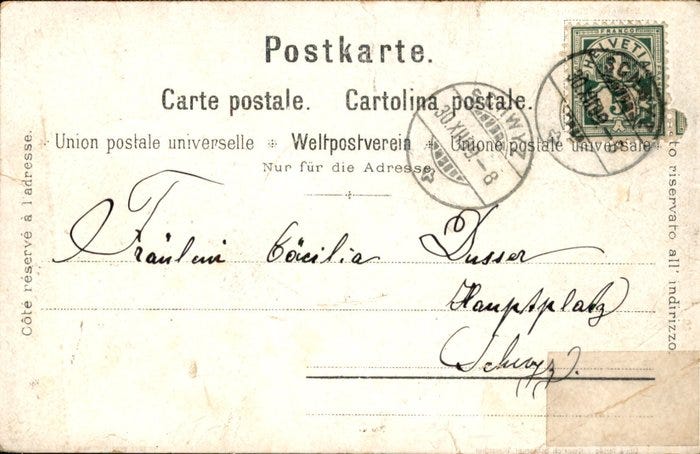 Postkarte.
Carte postale. Cartolina postale.
Union postale universelle * Weltpostverein * Unione postale universale
Nur für die Adresse.
Côté réservé à l'adresse.
to riservato all' indirizzo.
FRANCO
HELVETIA
5
SCHWYZ
30.XII.99.-8
SCHWYZ
Fräulein Cäcilia Dusser
Hauptplatz
Schwyz.